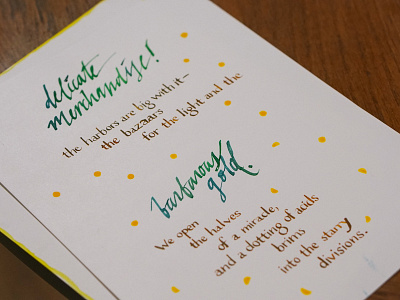 delicate
merchandise!
the harbors are big with it—
the bazaars
for the light and the
barbarous
gold.
We open
the halves
of a miracle,
and a dotting of acids
brims
into the starry
divisions.